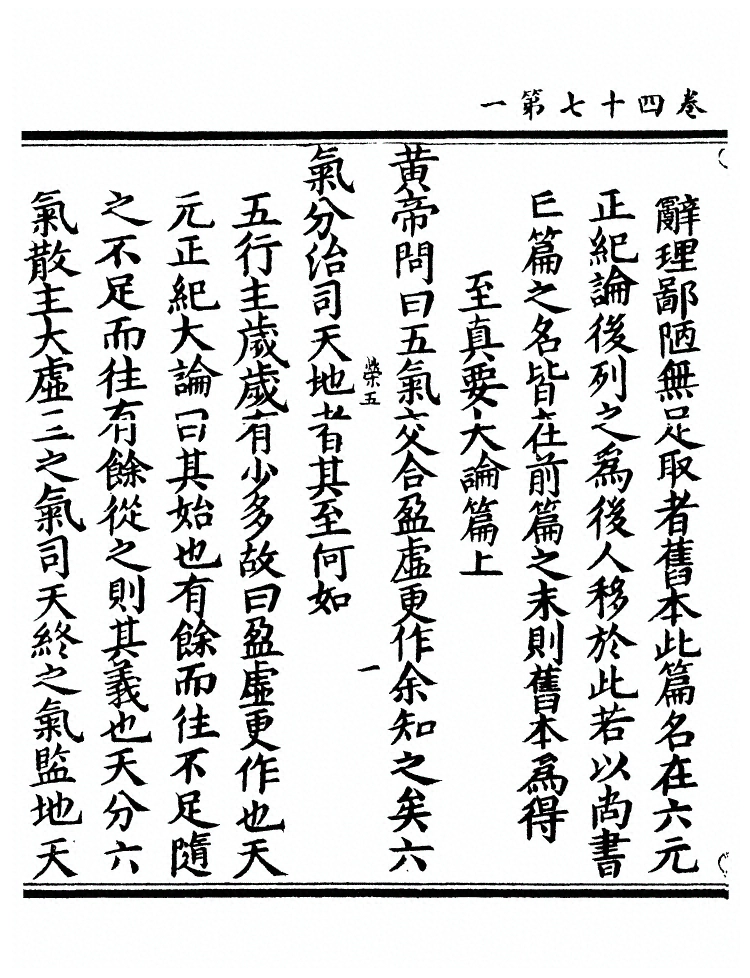 卷四十七第一
辭理鄙陋無足取者舊本此篇名在六元
正紀論後列之爲後人移於此若以尚書
亡篇之名皆在前篇之末則舊本爲得
至真要大論篇上
黃帝問曰五氣交合盈虛更作余知之矣六
榮五
一
氣分治司天地者其至何如
五行主歲歲有少多故曰盈虛更作也天
元正紀大論曰其始也有餘而往不足隨
之不足而往有餘從之則其義也天分六
氣散主大虛三之氣司天終之氣監地天